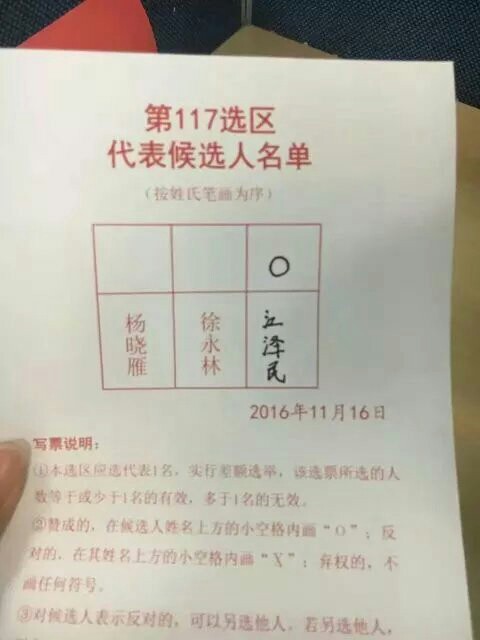 第117选区
代表候选人名单
（按姓氏笔画为序）
○
杨晓雁
徐永林
江泽民
2016年11月16日
写票说明：
①本选区应选代表1名，实行差额选举，该选票所选的人
数等于或少于1名的有效，多于1名的无效。
②赞成的，在候选人姓名上方的小空格内画“O”；反
对的，在其姓名上方的小空格内画“X”；弃权的，不
画任何符号。
③对候选人表示反对的，可以另选他人，若另选他人，